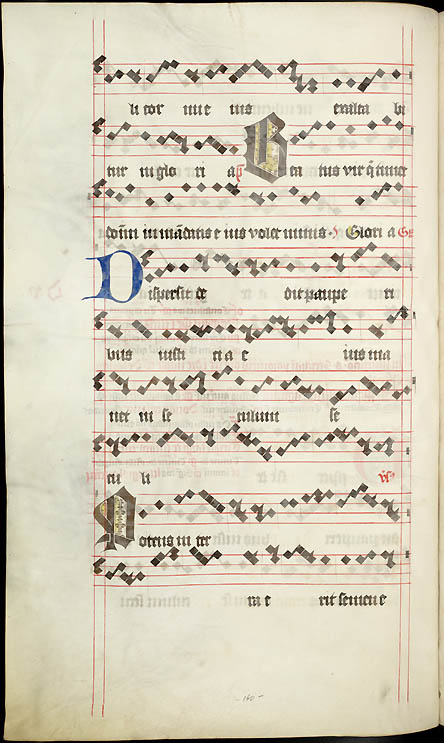 li cor nu e ius exalta bi
tur in glo ri a p̄ Bea tus vir q̄ timet
dom̄ in mādatis e ius volet nimis Glori a
Dispersit de dit paupe ri
bus iusti ci a e ius ma
net in se culum se
cu li v̄s
Potens in ter
ra e rit semen e
160